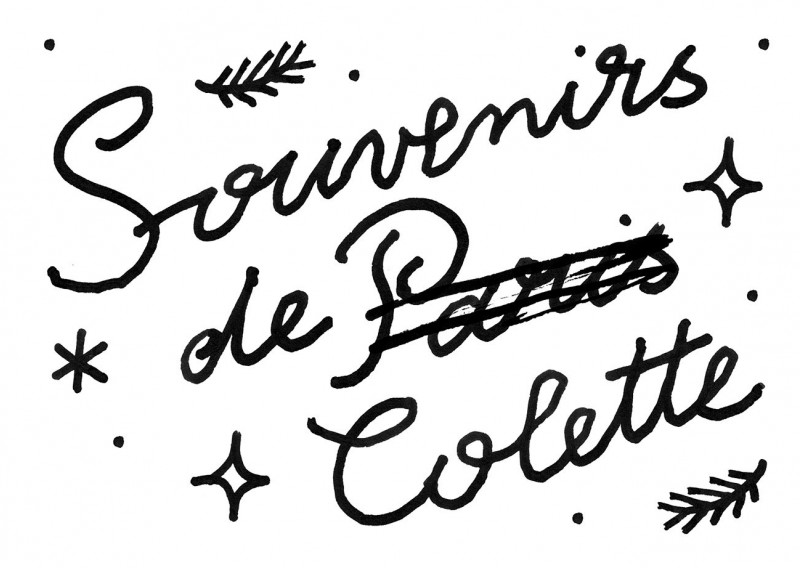 Souvenirs
de Paris
Colette